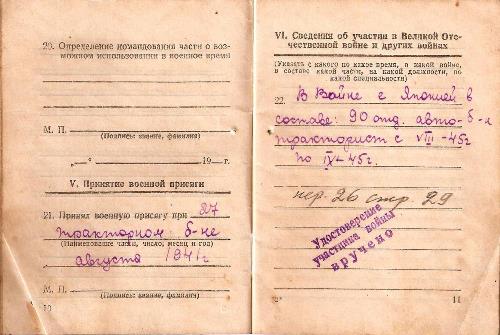 20. Определение командования части о воз-
можном использовании в военное время
М. П.
(Подпись: звание, фамилия)
„ “ 19 г.
V. Принятие военной присяги
21. Принял военную присягу при 27
тракторном б-не
(Наименование части, число, месяц и год)
августа 1941г
М. П.
(Подпись: звание, фамилия)
10
VI. Сведения об участии в Великой Оте-
чественной войне и других войнах
(Указать с какого по какое время, в какой войне,
в составе какой части, на какой должности, по
какой специальности)
22. В Войне с Японией в
составе: 90 отд. авто-б-н
тракторист с VIII-45г
по IX-45г.
пер. 26 стр. 29
Удостоверение
участника войны
вручено
11